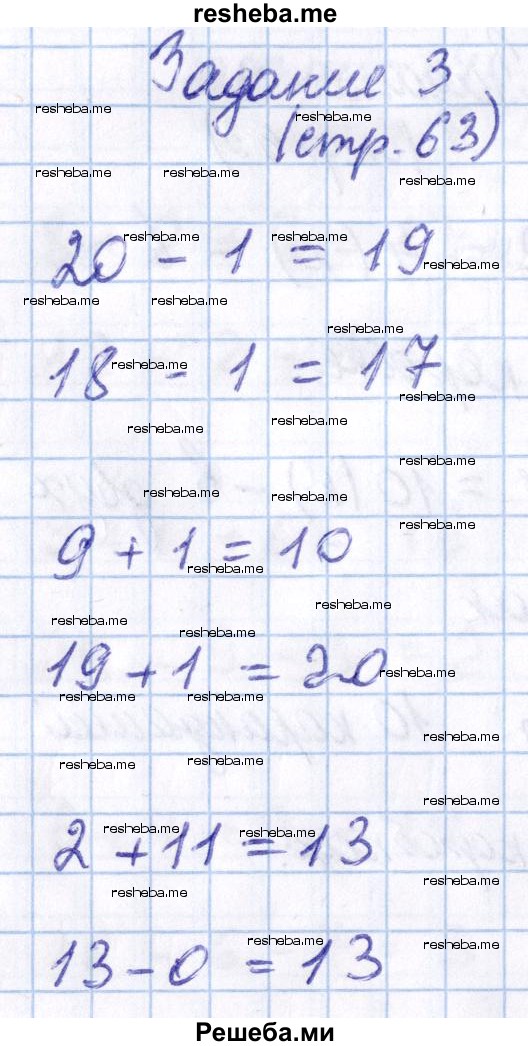 resheba.me
Задание 3
resheba.me
resheba.me
(стр. 63)
resheba.me resheba.me
resheba.me
resheba.me resheba.me
20 - 1 = 19
resheba.me
resheba.me resheba.me
resheba.me
18 - 1 = 17
resheba.me
resheba.me
resheba.me
resheba.me
resheba.me
resheba.me
resheba.me
resheba.me
9 + 1 = 10
resheba.me
resheba.me
resheba.me
resheba.me
19 + 1 = 20
resheba.me
resheba.me resheba.me
resheba.me
resheba.me
resheba.me
resheba.me
resheba.me resheba.me
2 + 11 = 13
resheba.me
resheba.me
resheba.me resheba.me
13 - 0 = 13
Решеба.ми